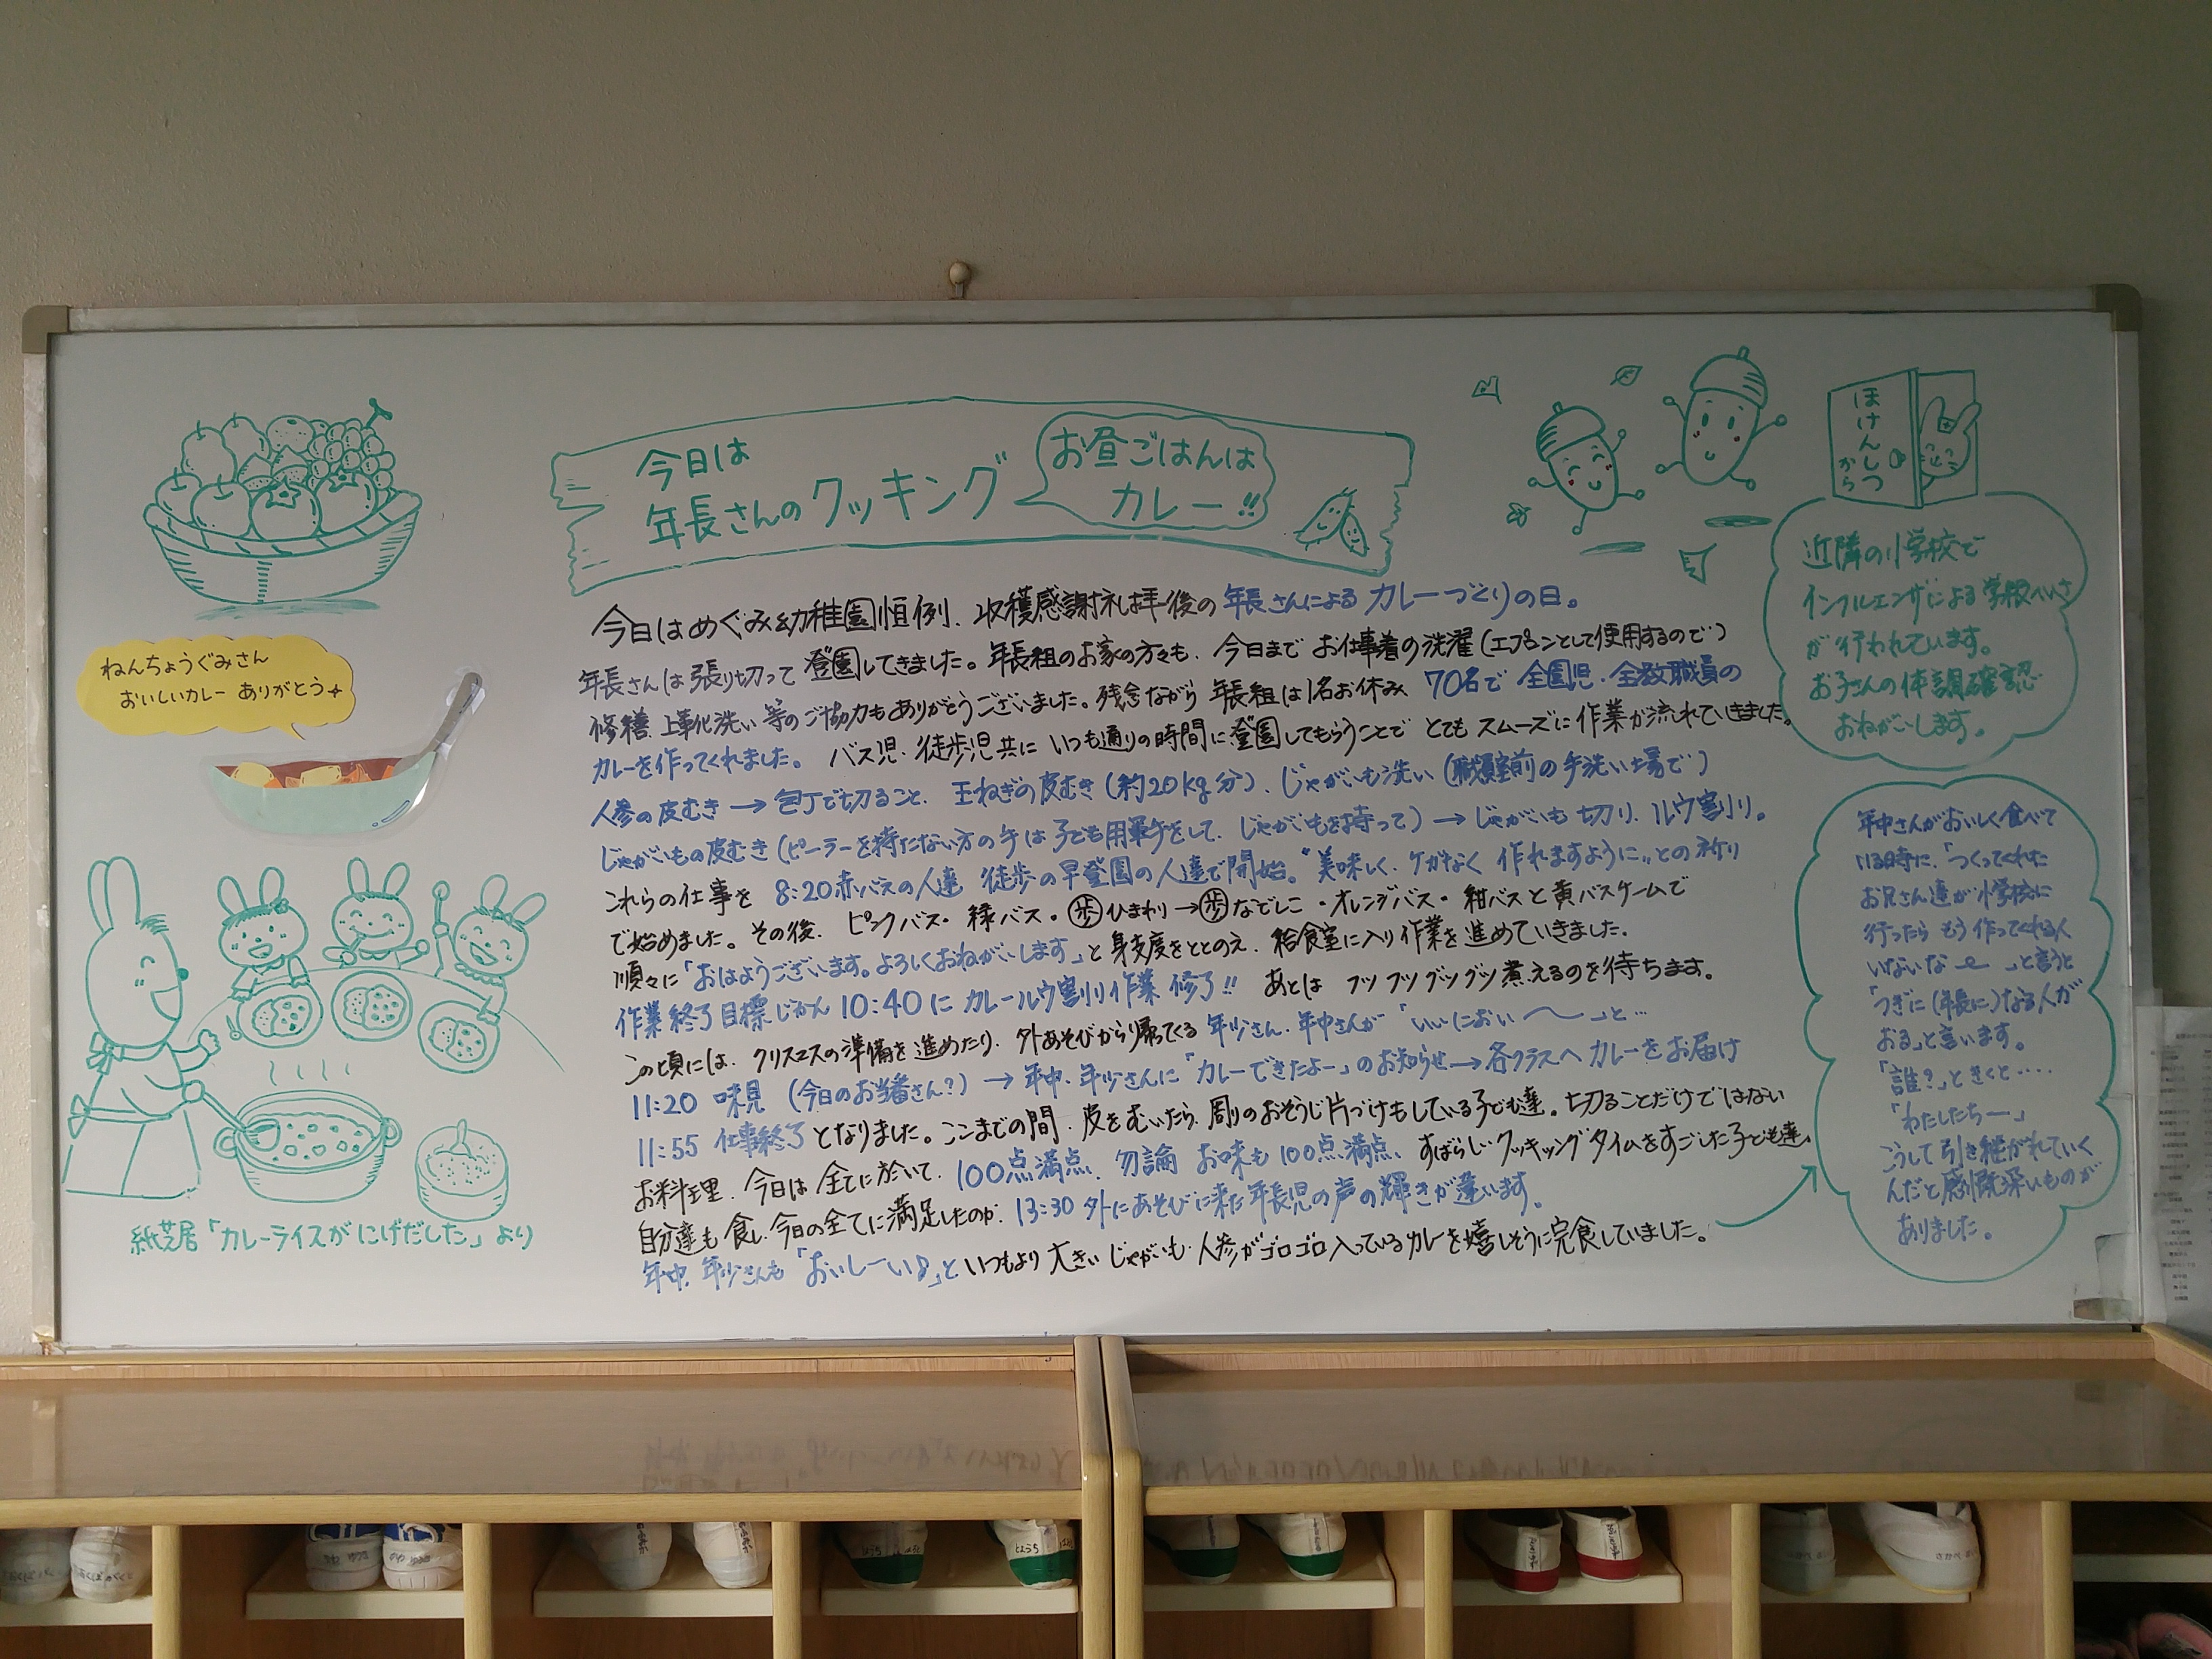 今日は
年長さんのクッキング
お昼ごはんは
カレー!!
ほけんしつ
から
近隣の小学校で
インフルエンザによる学級へいさ
が行われています。
お子さんの体調確認
おねがいします。
ねんちょうぐみさん
おいしいカレー ありがとう
今日はめぐみ幼稚園恒例、収穫感謝礼拝後の年長さんによるカレーづくりの日。
年長さんは張り切って登園してきました。年長組のお家の方々も、今日までお仕事着の洗濯(エプロンとして使用するので)
修繕、上靴洗い等のご協力もありがとうございました。残念ながら年長組は1名お休み、70名で全園児・全教職員の
カレーを作ってくれました。バス児・徒歩児共にいつも通りの時間に登園してもらうことでとてもスムーズに作業が流れていきました。
人参の皮むき→包丁で切ること、玉ねぎの皮むき(約20kg分)、じゃがいも洗い(職員室前の手洗い場で)
じゃがいもの皮むき(ピーラーを持たない方の手は子ども用軍手をして、じゃがいもを持って)→じゃがいも切り、ルウ割り。
これらの仕事を8:20赤バスの人達 徒歩の早登園の人達で開始。"美味しく、ケガなく 作れますように"との祈り
で始めました。その後、ピンクバス・緑バス・歩ひまわり→歩なでしこ・オレンジバス・紺バスと黄バスチームで
順々に「おはようございます。よろしくおねがいします」と身支度をととのえ、給食室に入り作業を進めていきました。
作業終了目標じかん10:40にカレールウ割り作業 修了!! あとは フツフツグツグツ煮えるのを待ちます。
この頃には、クリスマスの準備を進めたり、外あそびから帰ってくる年少さん、年中さんが「いいにおい〜」と…
11:20 味見(今日のお当番さん?)→年中、年少さんに「カレーできたよー」のお知らせ→各クラスへカレーをお届け
11:55 仕事終了となりました。ここまでの間、皮をむいたら、周りのおそうじ片づけもしている子ども達。切ることだけではない
お料理、今日は全てに於いて、100点満点、勿論 お味も100点満点、すばらしいクッキングタイムをすごした子ども達、
自分達も食し、今日の全てに満足したのか、13:30 外にあそびに来た年長児の声の輝きが違います。
年中、年少さんも「おいしーい♪」といつもより大きいじゃがいも、人参がゴロゴロ入っているカレーを嬉しそうに完食していました。
年中さんがおいしく食べて
いる時に、「つくってくれた
お兄さん達が小学校に
行ったら もう作ってくれる人
いないなー」と言うと
「つぎに(年長に)なる人が
おる」と言います。
「誰?」ときくと‥‥
「わたしたちー」
こうして引き継がれていく
んだと感慨深いものが
ありました。
紙芝居「カレーライスが にげだした」より